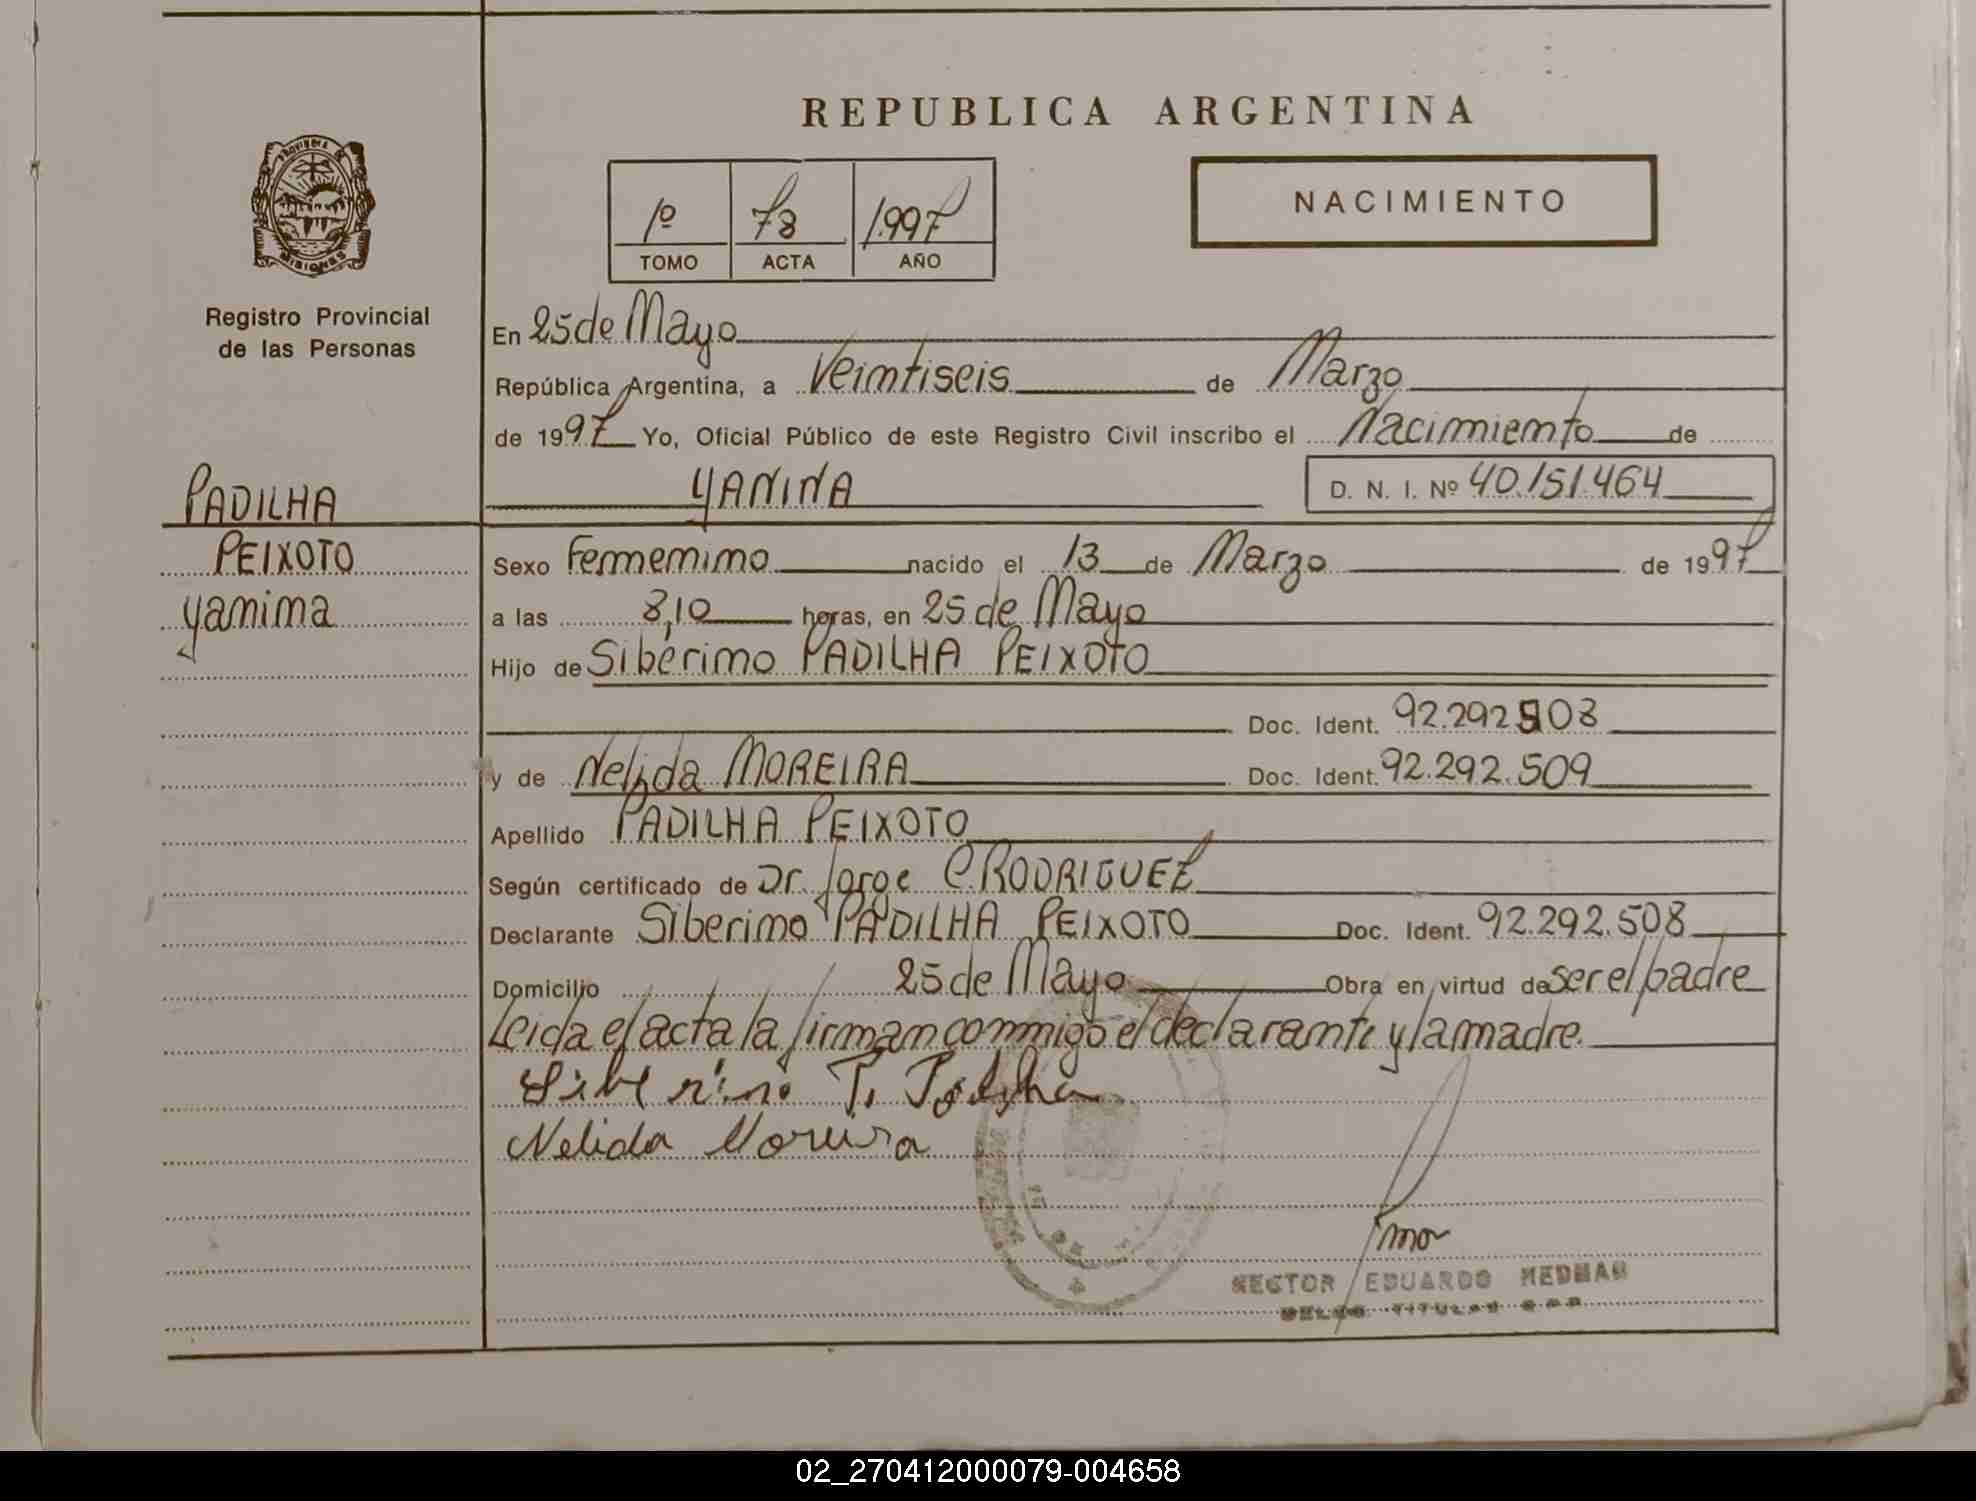 REPUBLICA ARGENTINA
PROVINCIA DE
MISIONES
Registro Provincial
de las Personas
1º 78 1.997
TOMO ACTA AÑO
NACIMIENTO
En 25 de Mayo
República Argentina, a Veintiseis de Marzo
de 1997 Yo, Oficial Público de este Registro Civil inscribo el Nacimiento de
YANINA D. N. I. Nº 40.151.464
PADILHA
PEIXOTO
Yanina
Sexo Femenino nacido el 13 de Marzo de 1997
a las 8,10 horas, en 25 de Mayo
Hijo de Siberino PADILHA PEIXOTO
Doc. Ident. 92.292508
y de Nelida MOREIRA Doc. Ident. 92.292.509
Apellido PADILHA PEIXOTO
Según certificado de Dr. Jorge C. RODRIGUEZ
Declarante Siberino PADILHA PEIXOTO Doc. Ident. 92.292.508
Domicilio 25 de Mayo Obra en virtud de ser el padre
Leida el acta la firman conmigo el declarante y la madre.
Siberino P. Padilha
Nelida Moreira
HECTOR EDUARDO
02_270412000079-004658